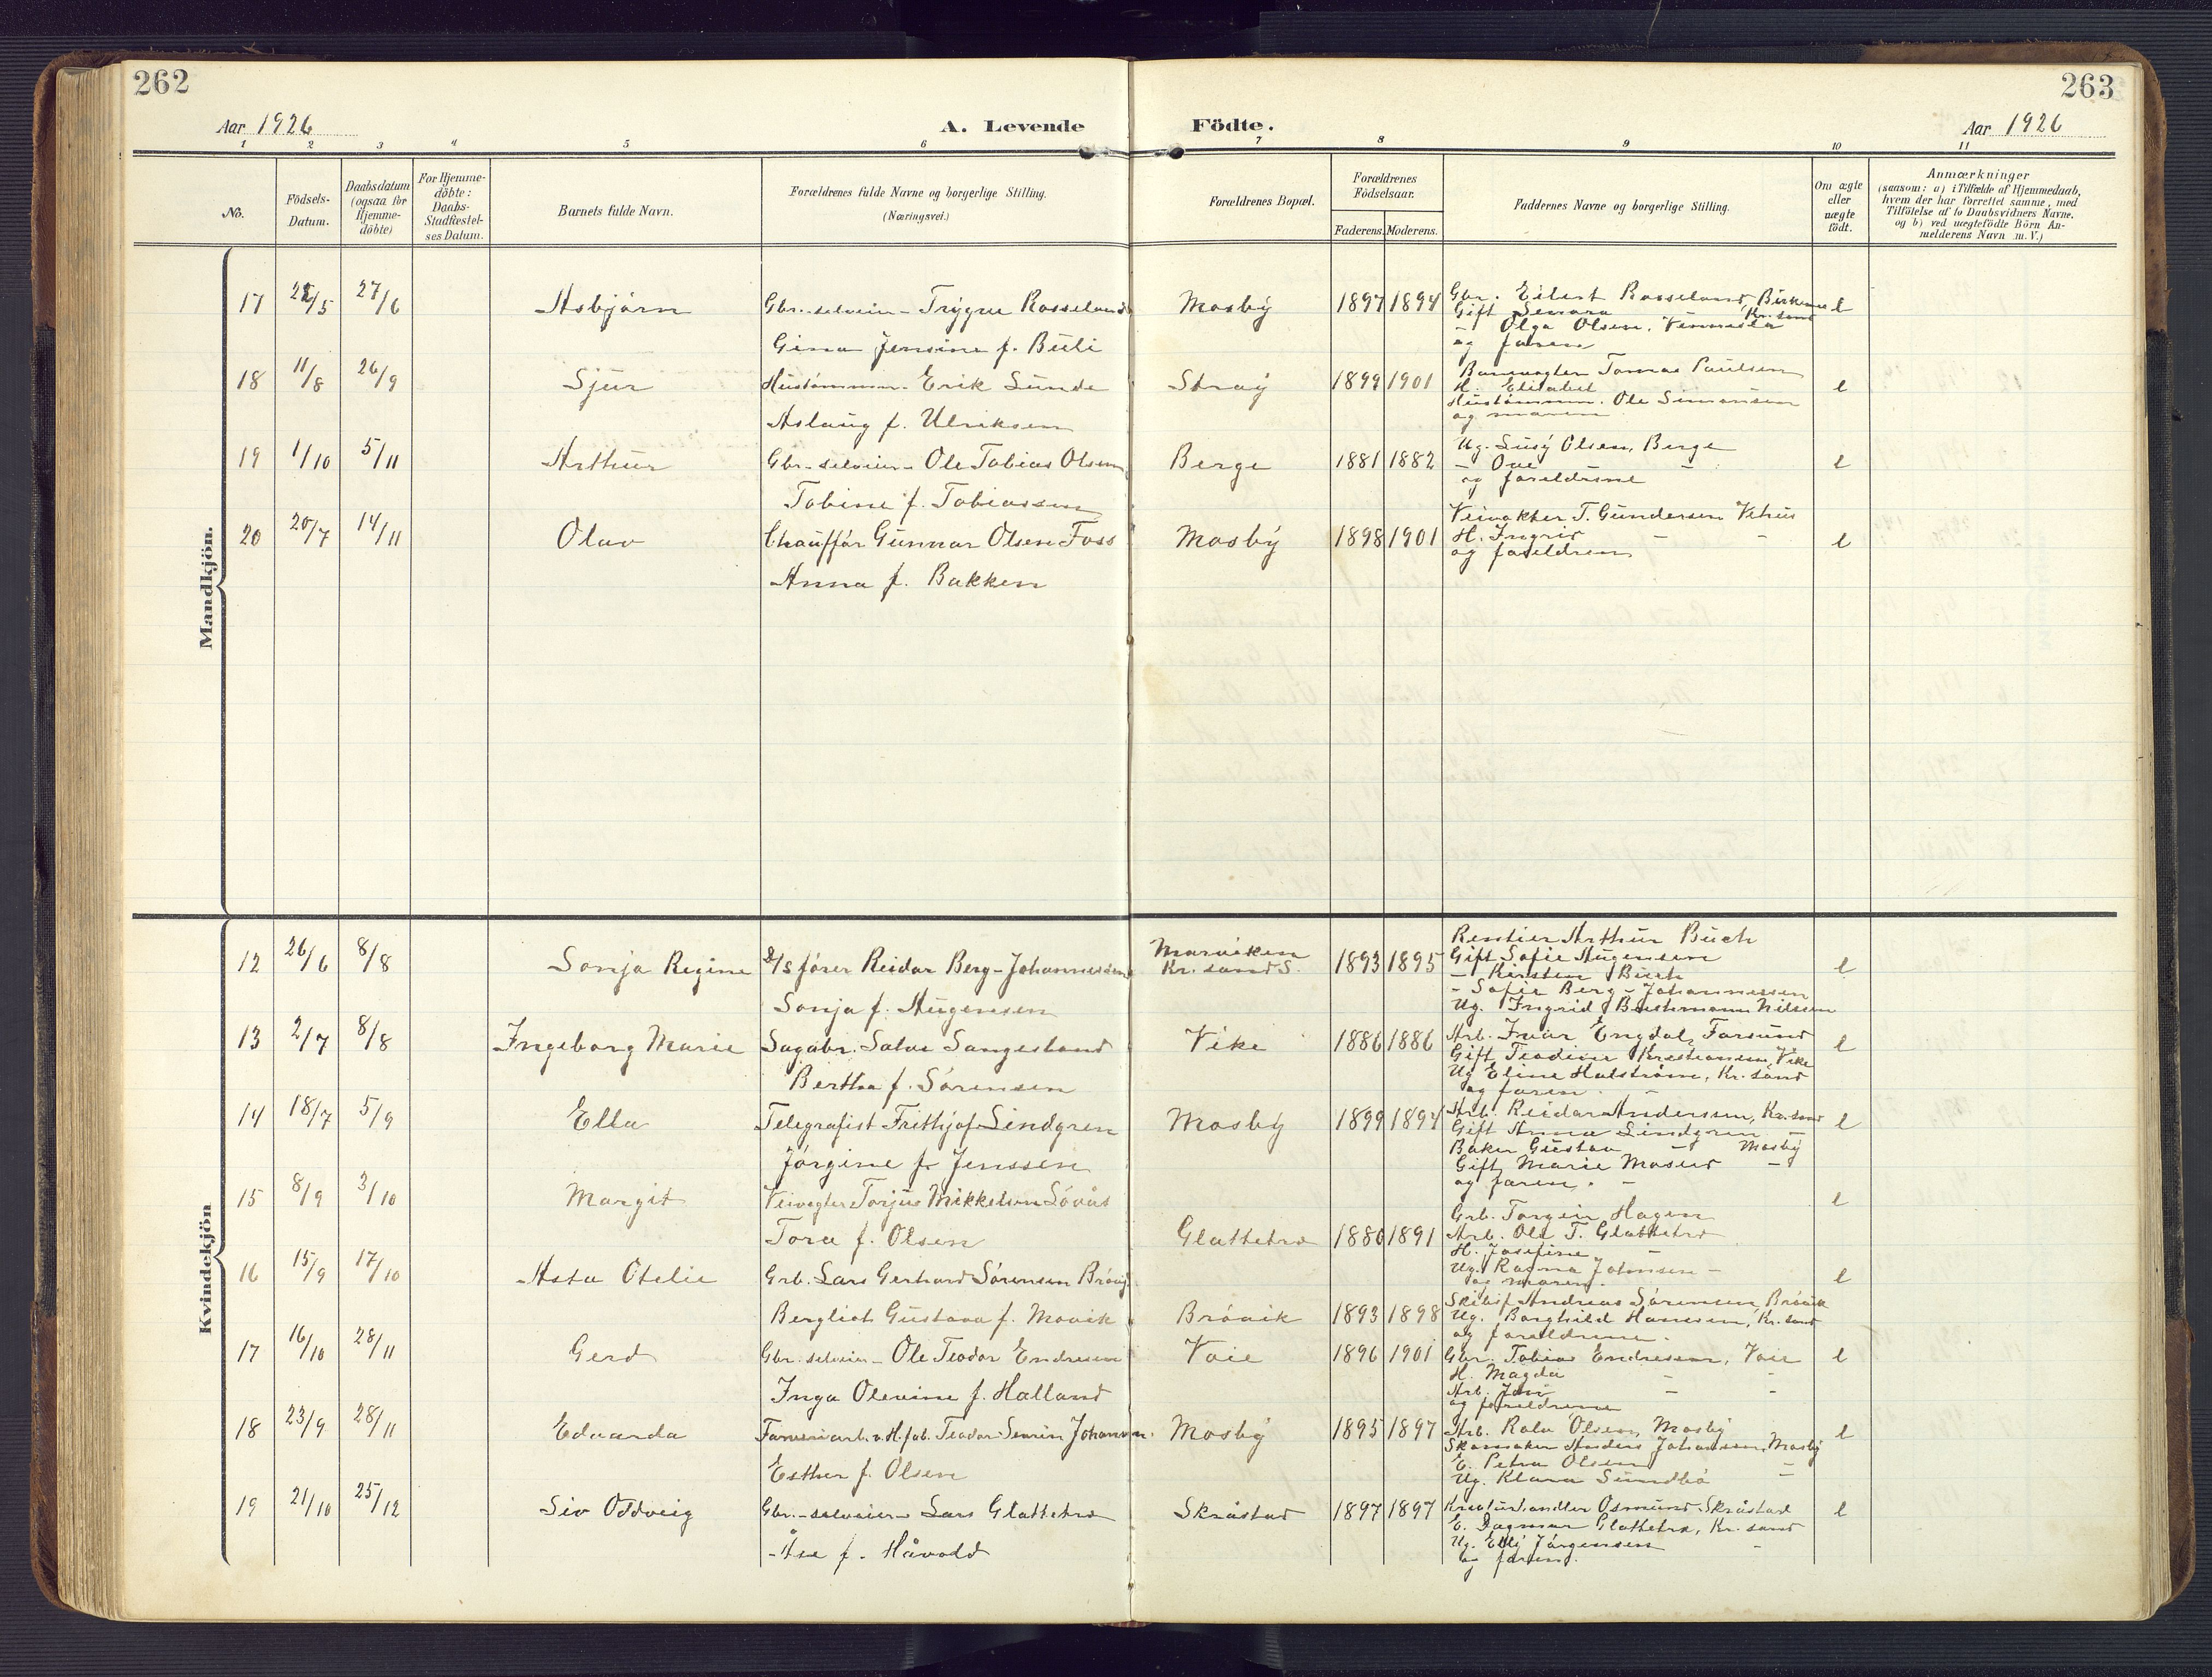 262
263
Aar 1926
A. Levende
Födte.
Aar 1926
1 2 3 4 5 6 7 8 9 10 11
No.
Födsels-
Datum.
Daabsdatum
(ogsaa for
Hjemme-
döbte)
For Hjemme-
döbte:
Daabs-
Stadfæstel-
ses Datum.
Barnets fulde Navn.
Forældrenes fulde Navne og borgerlige Stilling.
(Næringsvei.)
Forældrenes Bopæl.
Forældrenes
Födselsaar.
Faderens. Moderens.
Faddernes Navne og borgerlige Stilling.
Om ægte
eller
uægte
födt.
Anmærkninger
(saasom: a) i Tilfælde af Hjemmedaab,
hvem der har forrettet samme, med
Tilföielse af to Daabsvidners Navne.
og b) ved uægtefödte Börn An-
melderens Navn m. V.)
Mandkjön.
17 27/6 Asbjörn Gbr.-selveier- Trygve Rosseland Mosby 1897 1894 Gbr. Eilert Rosseland, Birkenes e
Gift Kr.sand
- Olga Olsen, Vennesla
Gina Jensine f. Büli
og faren
18 11/8 26/9 Sjur Hustömmer- Erik Sunde Stray 1899 1901 Banevogter Tomas Paulsen e
H. Elisabet
Hustömmer. Ole Simonsen
Aslaug f. Ulriksen
og moren
19 1/10 5/11 Arthur Gbr-selveier- Ole Tobias Olsen Berge 1881 1882 Ug. Susy Olsen, Berge e
- Ove - -
og foreldrene
Tobine f. Tobiassen
20 20/7 14/11 Olav Chaufför Gunnar Olsen Foss Mosby 1898 1901 Veivokter T. Gundersen Vehus e
H. Ingrid - -
og foreldrene
Anna f. Bakken
Kvindekjön
12 26/6 8/8 Sonja Regine D/S förer Reidar Berg-Johannessen Marviken
Kr.sand S. 1893 1895 Rentier Arthur Buch e
Gift Sofie Augensen
- Kirsten Buch
- Sofie Berg-Johannessen
Sonja f. Augensen
Ug. Ingrid Nilssen
13 2/7 8/8 Ingeborg Marie Sagabr. Salve Sangesland Vike 1886 1886 Arb. Ivar Engdal, Farsund e
Gift Teodine Kristiansen, Vike
Ug Eline Halström, Kr.sand
Bertha f. Sörensen
og faren.
14 18/7 5/9 Ella Telegrafist Frithjof Lindgren Mosby 1899 1894 Arb. Reidar Andersen, Kr.sand e
Gift Anna Lindgren -
Baker Gustav - Mosby
Gift Marie Moseid -
Jörgine f. Jenssen
og faren. -
15 8/9 3/10 Margit Veivogter Torjus Mikkelsen Lövås e
Tora f. Olsen Glattetre 1880 1891
Grb. Torgein Hagen
Arb. Ole T. Glattetre
H. Josefine -
Ug. Ragna Johnsen -
og moren.
16 15/9 17/10 Asta Otelie Grb. Lars Gerhard Sörensen Brövig e
Bergliot Gustava f. Movik Brövik 1893 1898
Andreas Sörensen, Brövik
Ug. Borghild Hansen, Kr.sand
og foreldrene.
17 16/10 28/11 Gerd Gbr.selveier- Ole Teodor Endresen Voie 1896 1901 Gbr. Tobias Endresen, Voie e
H. Magda - -
Arb. - -
Inga Olevine f. Halland
og foreldrene
18 23/9 28/11 Edvarda Teodor Severin Johansen. Mosby 1895 1897 Arb. Rolv Olsen, Mosby e
Skomaker Anders Johansen, Mosby
E. Petra Olsen -
Esther f. Olsen
Ug. Klara Sundbö -
19 21/10 25/12 Siv Oddveig Gbr.-selveier- Lars Glattetre Skråstad 1897 1897 Kreaturhandler Osmund Skråstad e
E. Dagmar Glattetre, Kr.sand
Ug. Elly Jörgensen -
Åse f. Håvold
og faren.